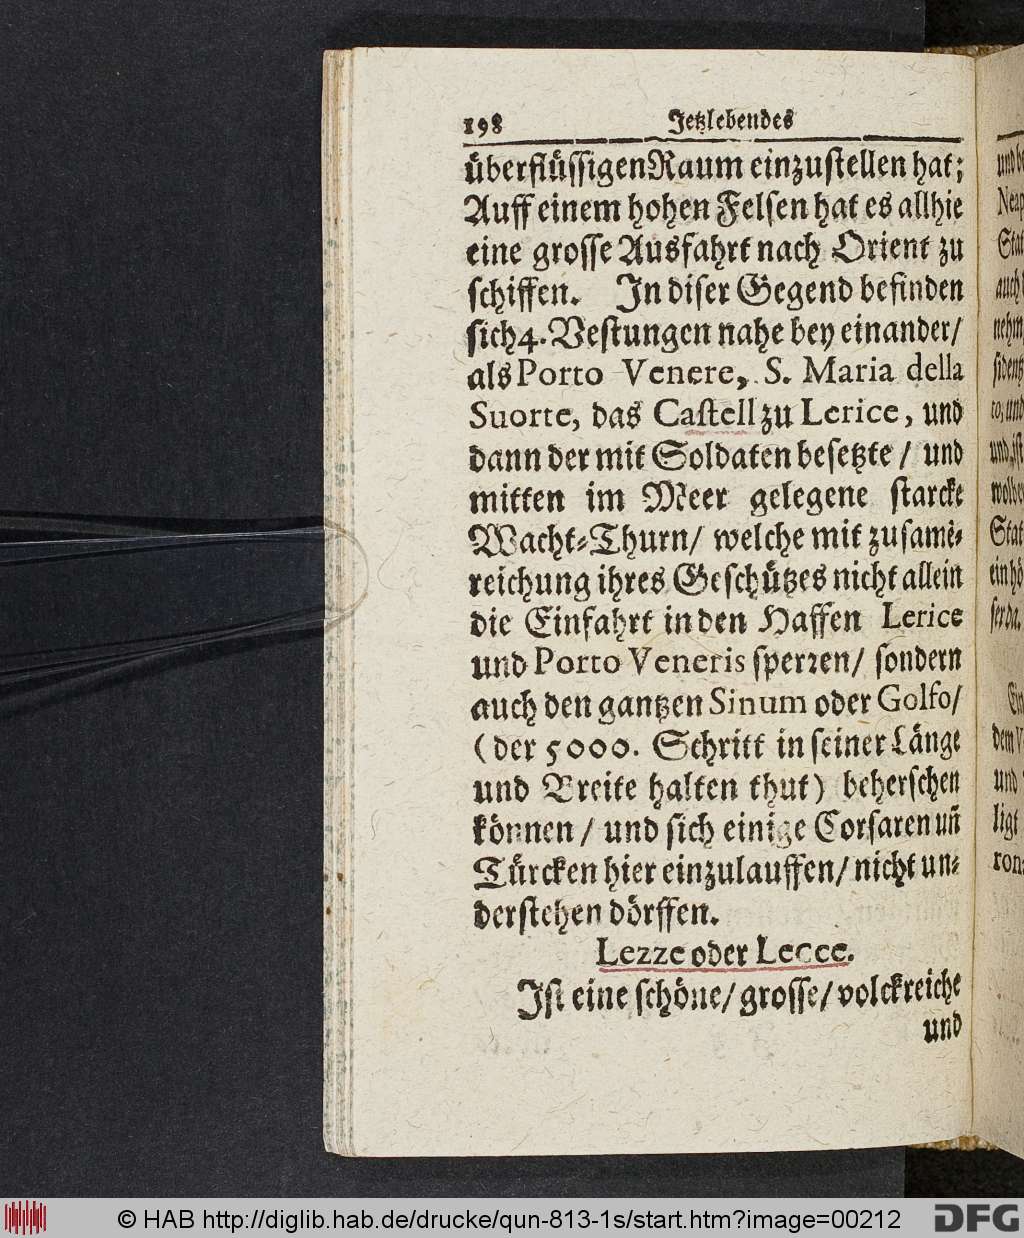 198 Jetzlebendes
überflüssigen Raum einzustellen hat;
Auff einem hohen Felsen hat es allhie
eine grosse Ausfahrt nach Orient zu
schiffen. In diser Gegend befinden
sich 4. Vestungen nahe bey einander/
als Porto Venere, S. Maria della
Suorte, das Castell zu Lerice, und
dann der mit Soldaten besetzte / und
mitten im Meer gelegene starcke
Wacht-Thurn/ welche mit zusam̃e-
reichung ihres Geschützes nicht allein
die Einfahrt in den Haffen Lerice
und Porto Veneris sperren/ sondern
auch den gantzen Sinum oder Golfo/
(der 5000. Schritt in seiner Länge
und Breite halten thut) beherschen
können / und sich einige Corsaren uñ
Türcken hier einzulauffen/ nicht un-
derstehen dörffen.
Lezze oder Lecce.
Ist eine schöne/ grosse/ volckreiche
und
und
Neap
Stat
auch
nehm
sident
to, und
und, ist
wolbe
Stat
ein hö
ser da.
Ein
dem V
und
ligt
ron
© HAB http://diglib.hab.de/drucke/qun-813-1s/start.htm?image=00212
DFG